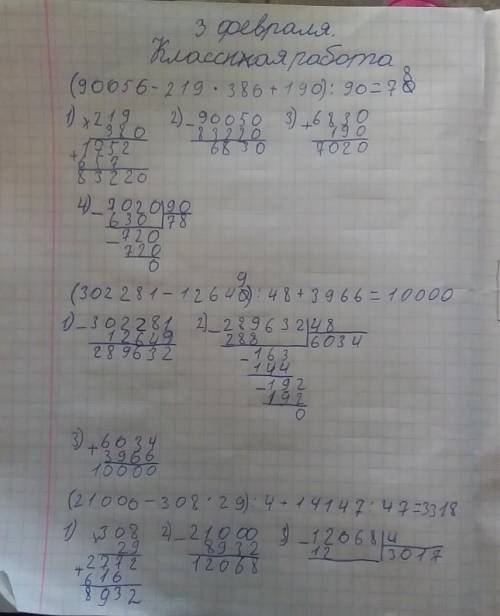 3 февраля.
Классная работа
(90056-219·386+190):90=78
1) ×219 2) -90050 3) +6830
380 83220 190
+1752 6830 7020
657
83220
4) -9020 90
630 78
-720
720
0
(302281-12649):48+3966=10000
1) -302281 2) -289632 48
12649 288 6034
289632 -163
144
-192
192
0
3) +6034
3966
10000
(21000-308·29):4+14147:47=3318
1) ×308 2) -21000 3) -12068 4
29 8932 12 3017
+2772 12068
616
8932